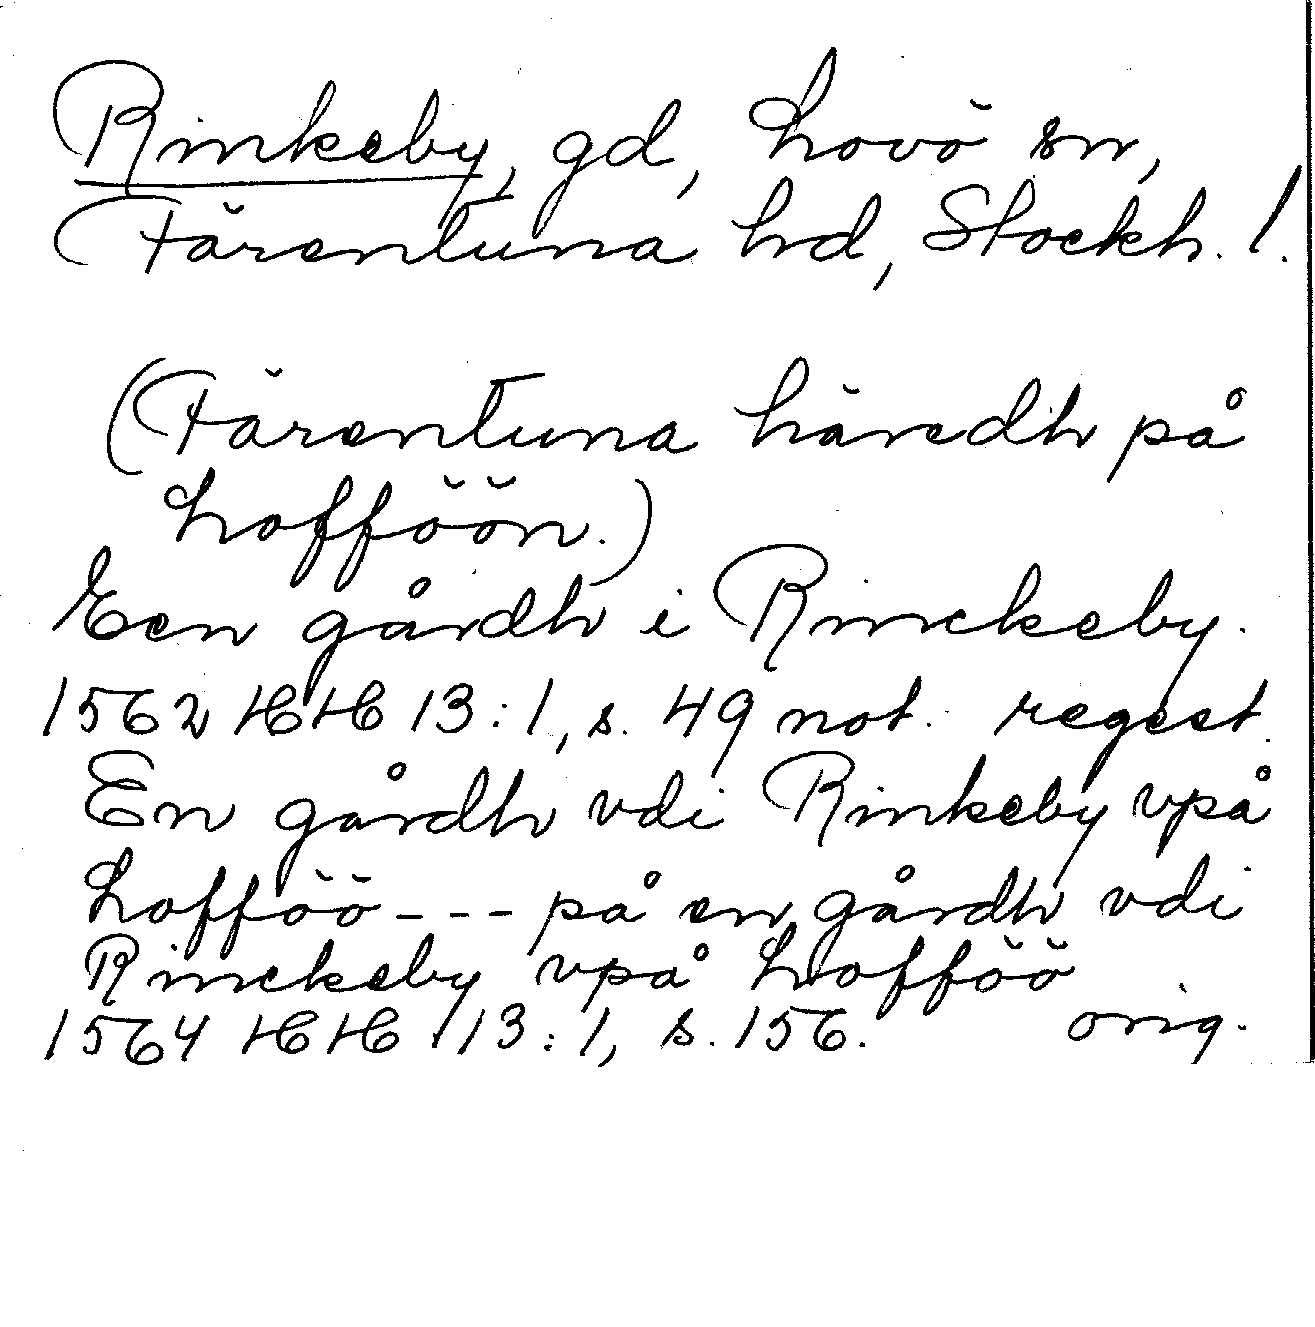 Rinkeby, gd, Lovö sn,
Färentuna hd, Stockh. l.
(Färentuna häredh på
Lofföön.)
Een gårdh i Rinckeby.
1562 HH 13:1, s. 49 not. regest.
En gårdh vdi Rinkeby vpå
Lofföö - - - på en gårdh vdi
Rinckeby vpå Lofföö
1564 HH 13:1, s. 156. orig.